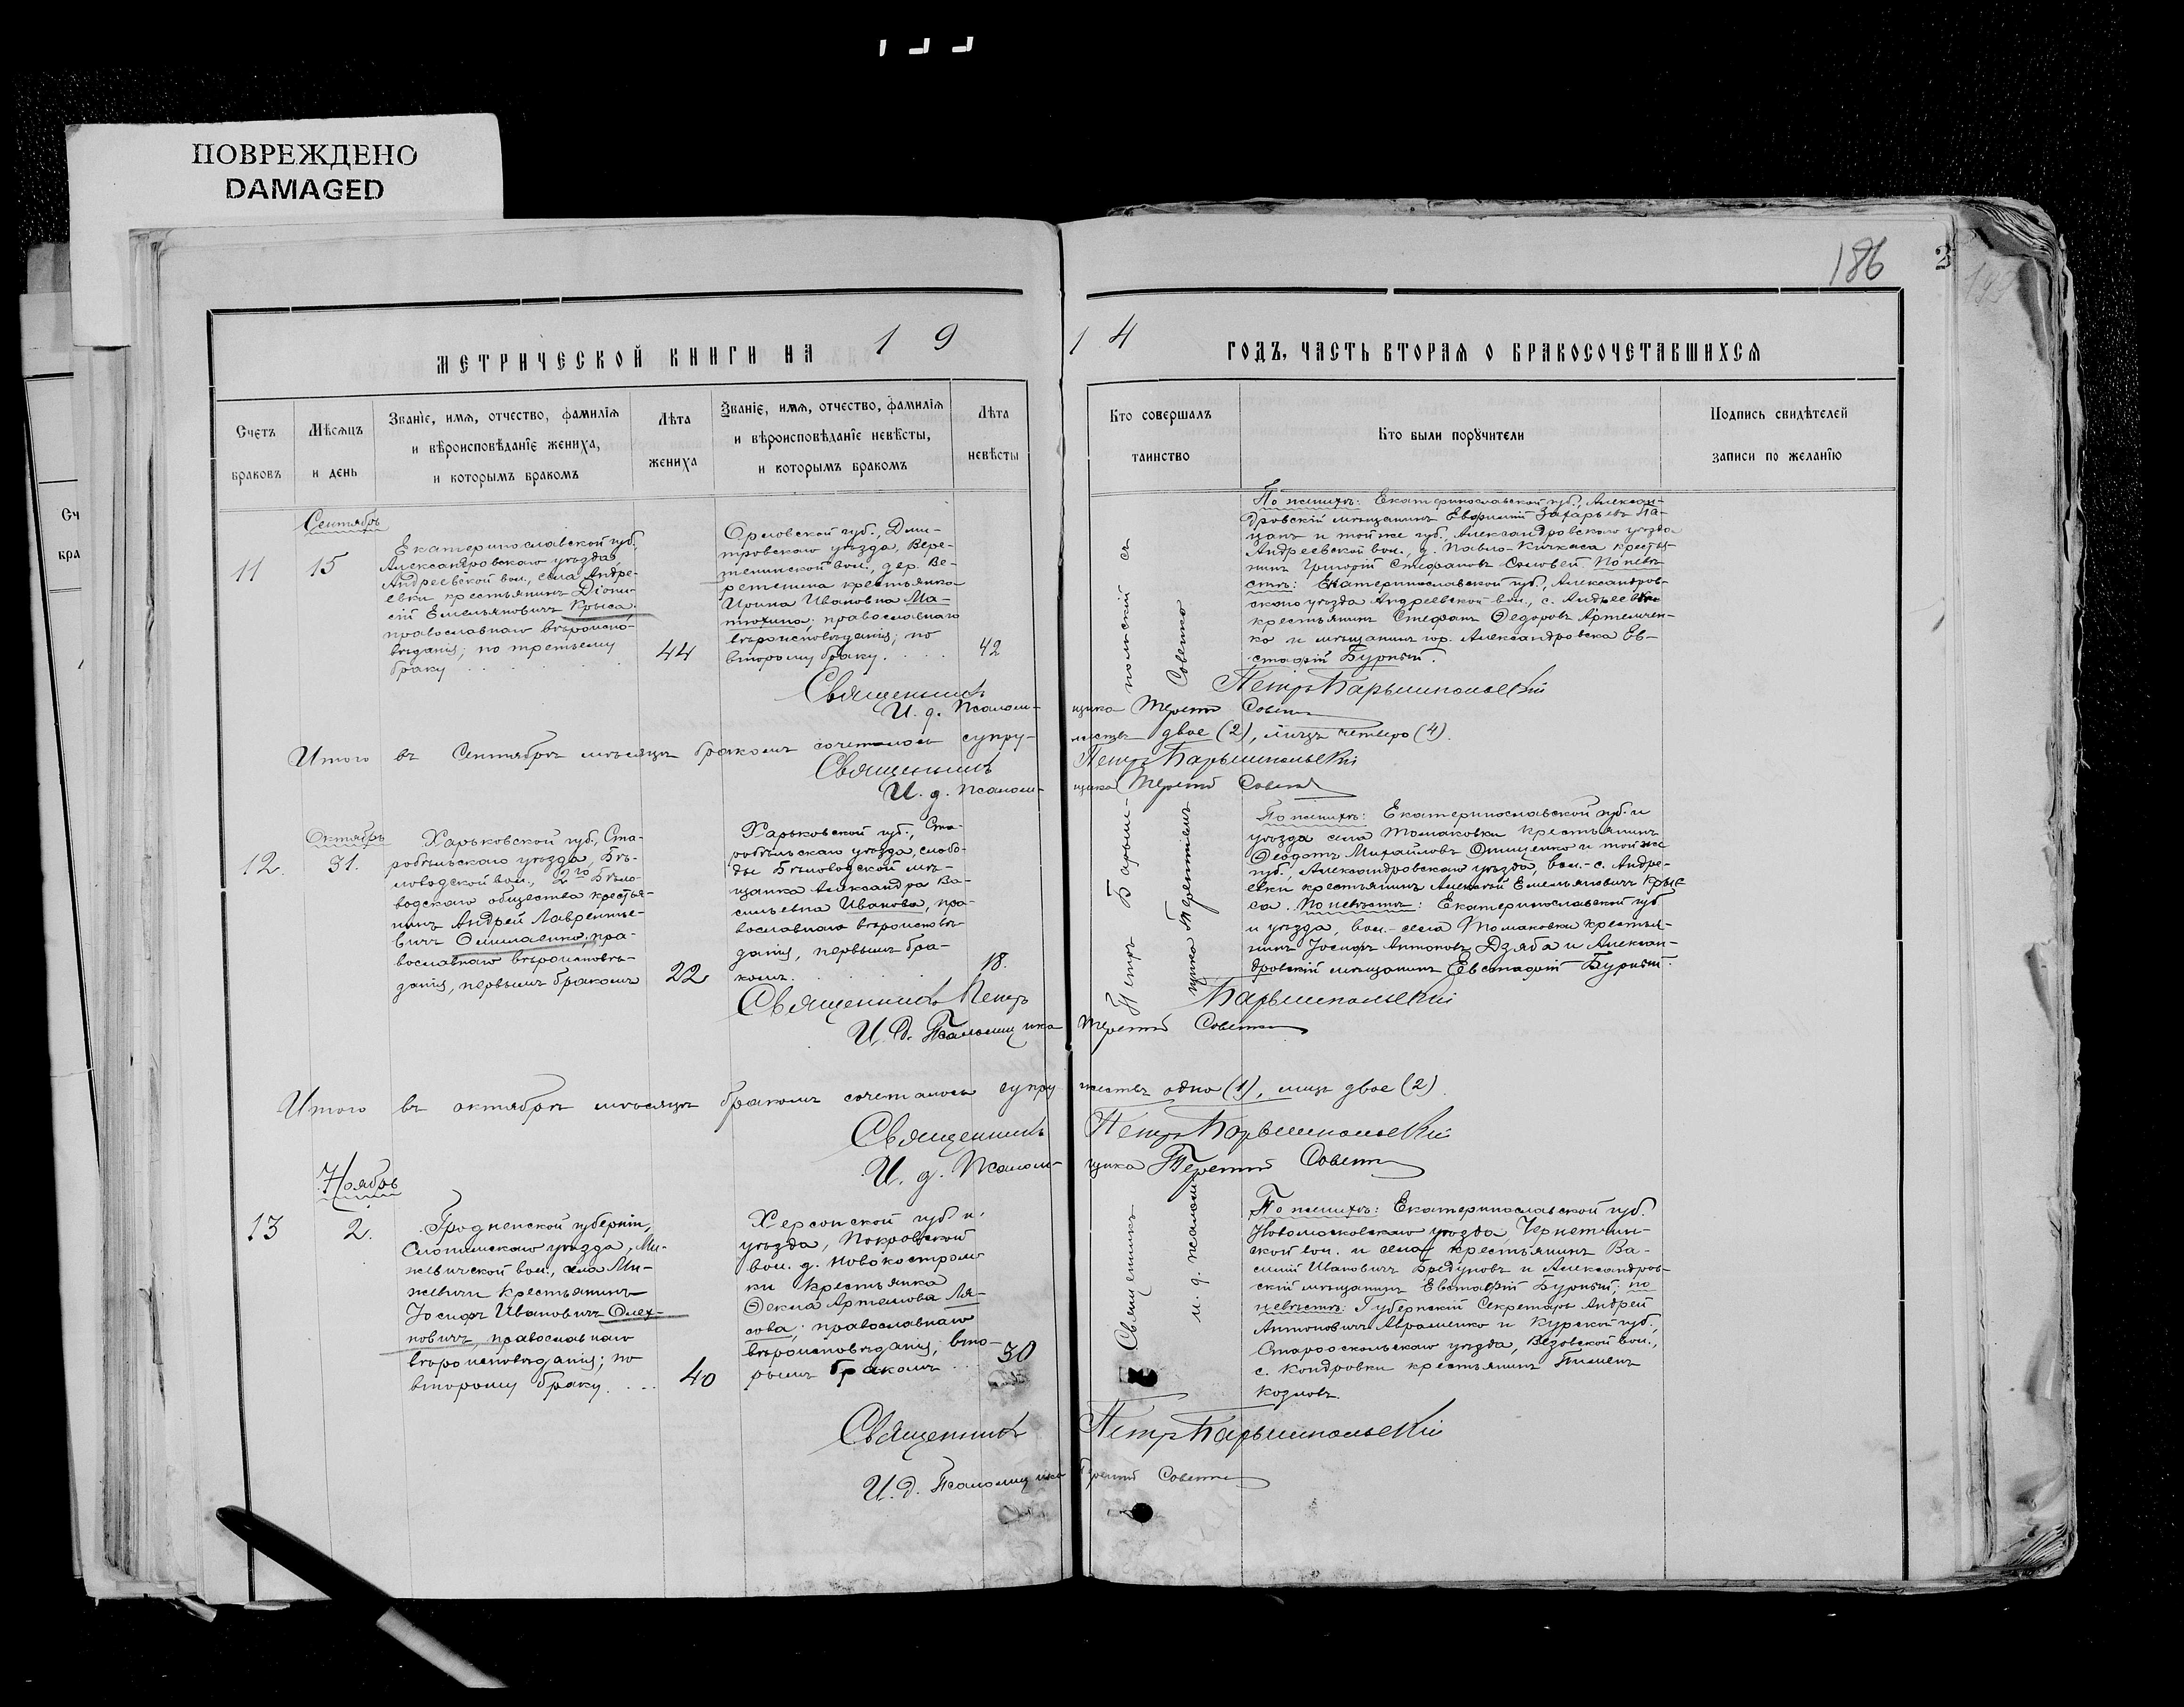 ПОВРЕЖДЕНО
DAMAGED
186
МЕТРИЧЕСКОЙ КНИГИ НА 19
14 ГОДЪ, ЧАСТЬ ВТОРАЯ О БРАКОСОЧЕТАВШИХСЯ
Счетъ
браковъ
Мѣсяцъ
и день
Званіе, имя, отчество, фамилія
и вѣроисповѣданіе жениха,
и которымъ бракомъ
Лѣта
жениха
Званіе, имя, отчество, фамилія
и вѣроисповѣданіе невѣсты,
и которымъ бракомъ
Лѣта
невѣсты
Кто совершалъ
таинство
Кто были поручители
Подпись свидѣтелей
записи по желанію
Сентябрь
11
15
Екатеринославской губ.,
Александровскаго уѣзда,
Андреевской вол., села Андре-
евки крестьянинъ Діони-
сій Емельяновичъ Крыса,
православнаго вѣроиспо-
вѣданія; по третьему
браку
44
Орловской губ., Дми-
тровскаго уѣзда, Вере-
тенинской вол., дер. Ве-
ретенина крестьянка
Ирина Ивановна Ма-
тюхина; православнаго
вѣроисповѣданія; по
второму браку.
42
По женихѣ: Екатеринославской губ., Алексан-
дровскій мѣщанинъ Евфимій Захарьевъ
и той же губ., Александровскаго уѣзда
Андреевской вол., д. Павло-Кичкаса крестья-
нинъ Григорій Стефановъ Соловей. По невѣ-
стѣ: Екатеринославской губ., Александров-
скаго уѣзда Андреевской вол., с. Андреевки
крестьянинъ Стефанъ Ѳедоровъ Артемчен-
ко и мѣщанинъ гор. Александровска Ев-
стафій Бурный.
Священникъ Петръ Барышпольскій
И. д. Псаломщика Терентій Совенко
Итого въ Сентябрѣ мѣсяцѣ бракомъ сочеталось супружествъ двое (2), лицъ четверо (4).
Священникъ Петръ Барышпольскій
И. д. Псаломщика Терентій Совенко
Октябрь
12.
31.
Харьковской губ., Ста-
робѣльскаго уѣзда, Бѣ-
ловодской вол., 2го Бѣло-
водскаго общества крестья-
нинъ Андрей Лаврентье-
вичъ
православнаго вѣроисповѣ-
данія, первымъ бракомъ
22
Харьковской губ., Ста-
робѣльскаго уѣзда, слобо-
ды Бѣловодской мѣ-
щанка Александра Ва-
сильевна Иванова, пра-
вославнаго вѣроисповѣ-
данія, первымъ бра-
комъ.
18.
По женихѣ: Екатеринославской губ. и
уѣзда села Томаковки крестьянинъ
Ѳеодотъ Михайловъ Онищенко и той же
губ., Александровскаго уѣзда, вол.-с. Андре-
евки крестьянинъ Алексѣй Емельяновичъ Кры-
са. По невѣстѣ: Екатеринославской губ.
и уѣзда, вол.-села Томаковки крестья-
нинъ Іосифъ Антоновъ Дзяба и Алексан-
дровскій мѣщанинъ Евстафій Бурный.
Священникъ Петръ Барышпольскій
И. д. Псаломщика Терентій Совенко
Итого въ октябрѣ мѣсяцѣ бракомъ сочеталось супружествъ одно (1), лицъ двое (2).
Священникъ Петръ Барышпольскій
И. д. Псаломщика Терентій Совенко
Ноябрь
13
2.
Гродненской губерніи,
Слонимскаго уѣзда, Ми-
жевичской вол., села Ми-
жевичи крестьянинъ
Іосифъ Ивановичъ Олех-
новичъ, православнаго
вѣроисповѣданія; по
второму браку.
40
Херсонской губ. и
уѣзда, Покровской
вол. д. Новокостром-
ки крестьянка
Ѳекла Артемова Ля-
сова; православнаго
вѣроисповѣданія, вто-
рымъ бракомъ
30
По женихѣ: Екатеринославской губ.
Новомосковскаго уѣзда, Чернетчин-
ской вол. и села крестьянинъ Ва-
силій Ивановичъ Бредуновъ и Александров-
скій мѣщанинъ Евстафій Бурный; по
невѣстѣ: Губернскій Секретарь Андрей
Антоновичъ Авраменко и Курской губ.,
Старооскольскаго уѣзда, вол.,
с. Кондровки крестьянинъ Пименъ
Козловъ.
Священникъ Петръ Барышпольскій
И. д. Псаломщика Терентій Совенко
Священникъ Петръ Барышпольскій съ
и. д. псаломщика Терентіемъ Совенко